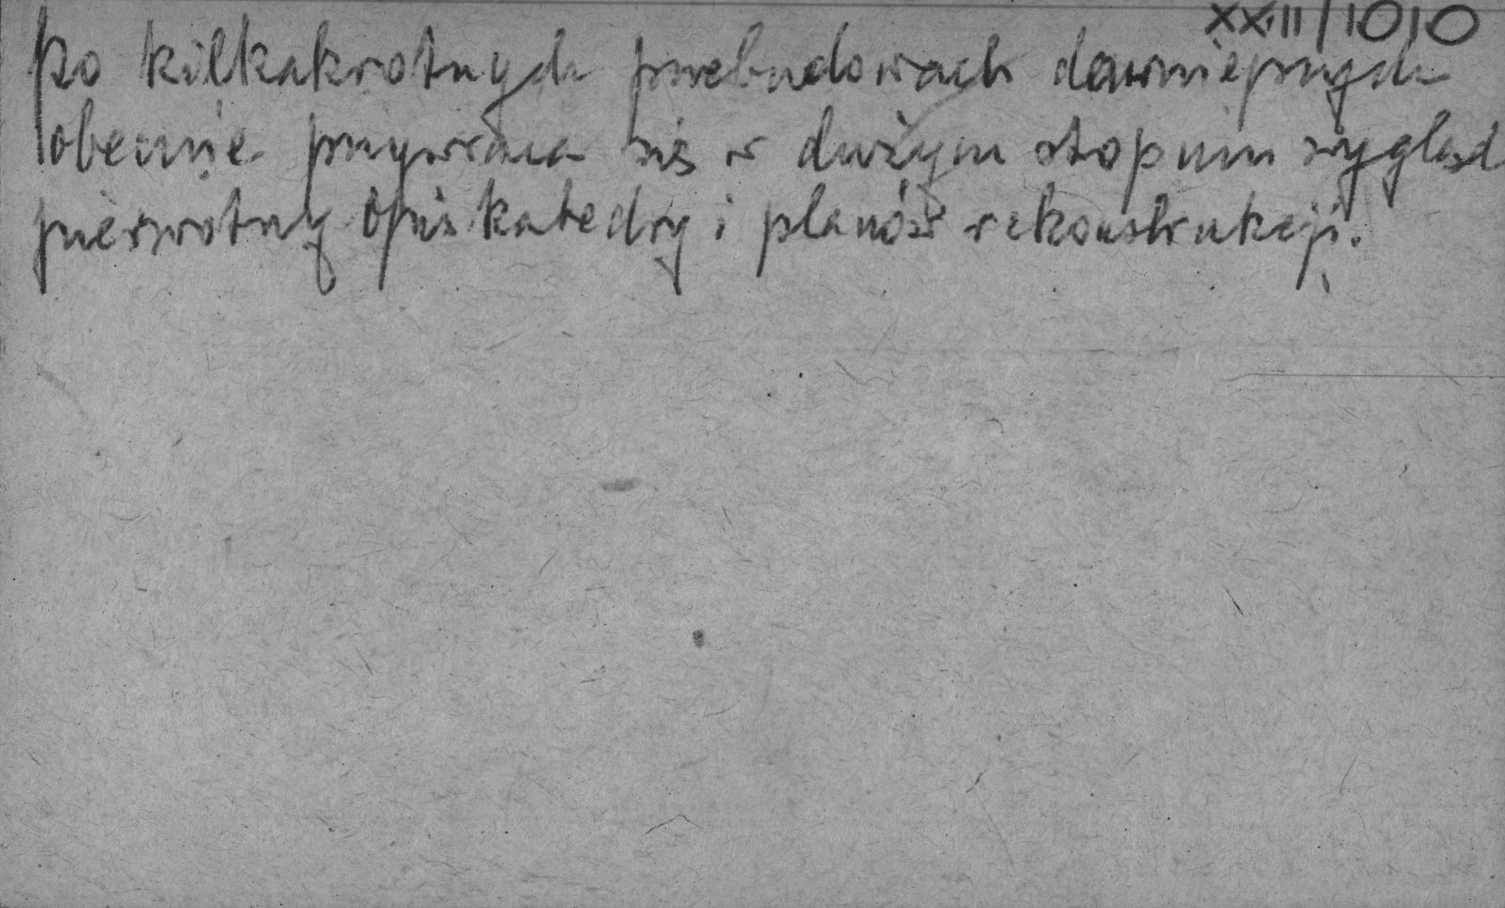 XXIII/1010
Po kilkakrotnych przebudowach dawniejszych
obecnie przywraca się w dużym stopniu wygląd
pierwotny Opis katedry i planów rekonstrukcji.